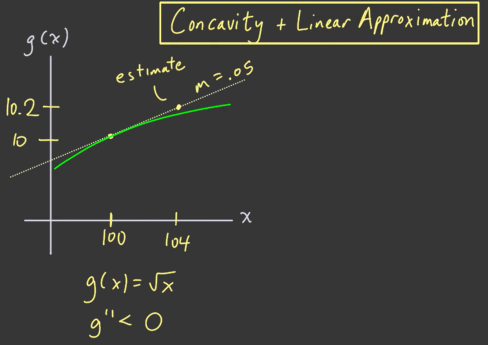 Concavity + Linear Approximation
g(x)
estimate
m = .05
10.2
10
x
100
104
g(x) = √x
g'' < 0